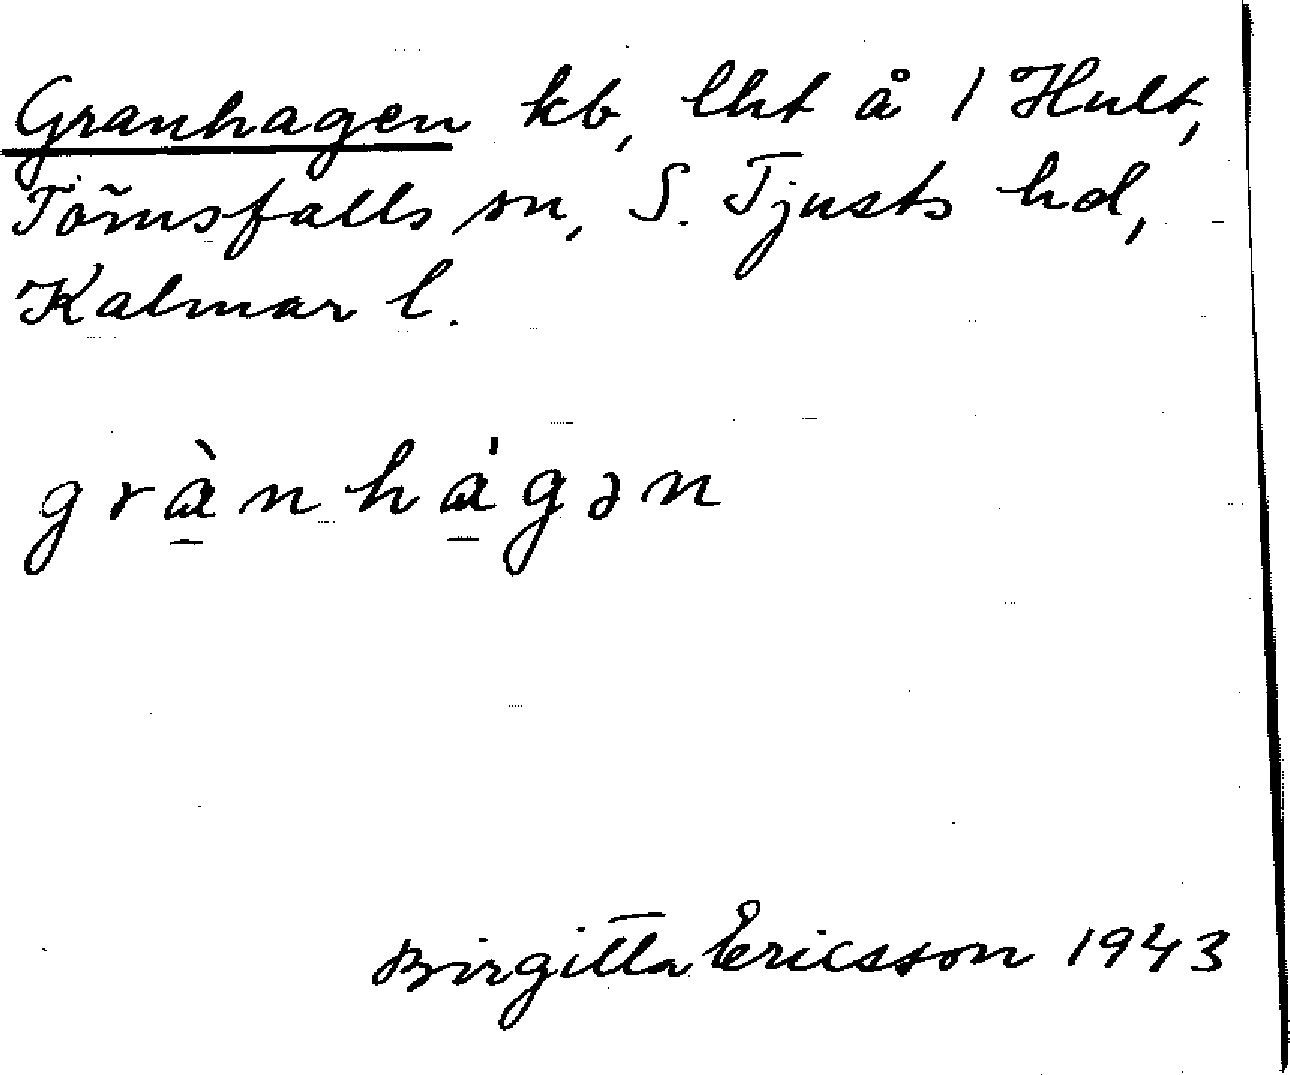 Granhagen kb, lht å 1 Hult,
Törnsfalls sn, S. Tjusts hd,
Kalmar l.
grà̠nhá̠gən
Birgitta Ericsson 1943